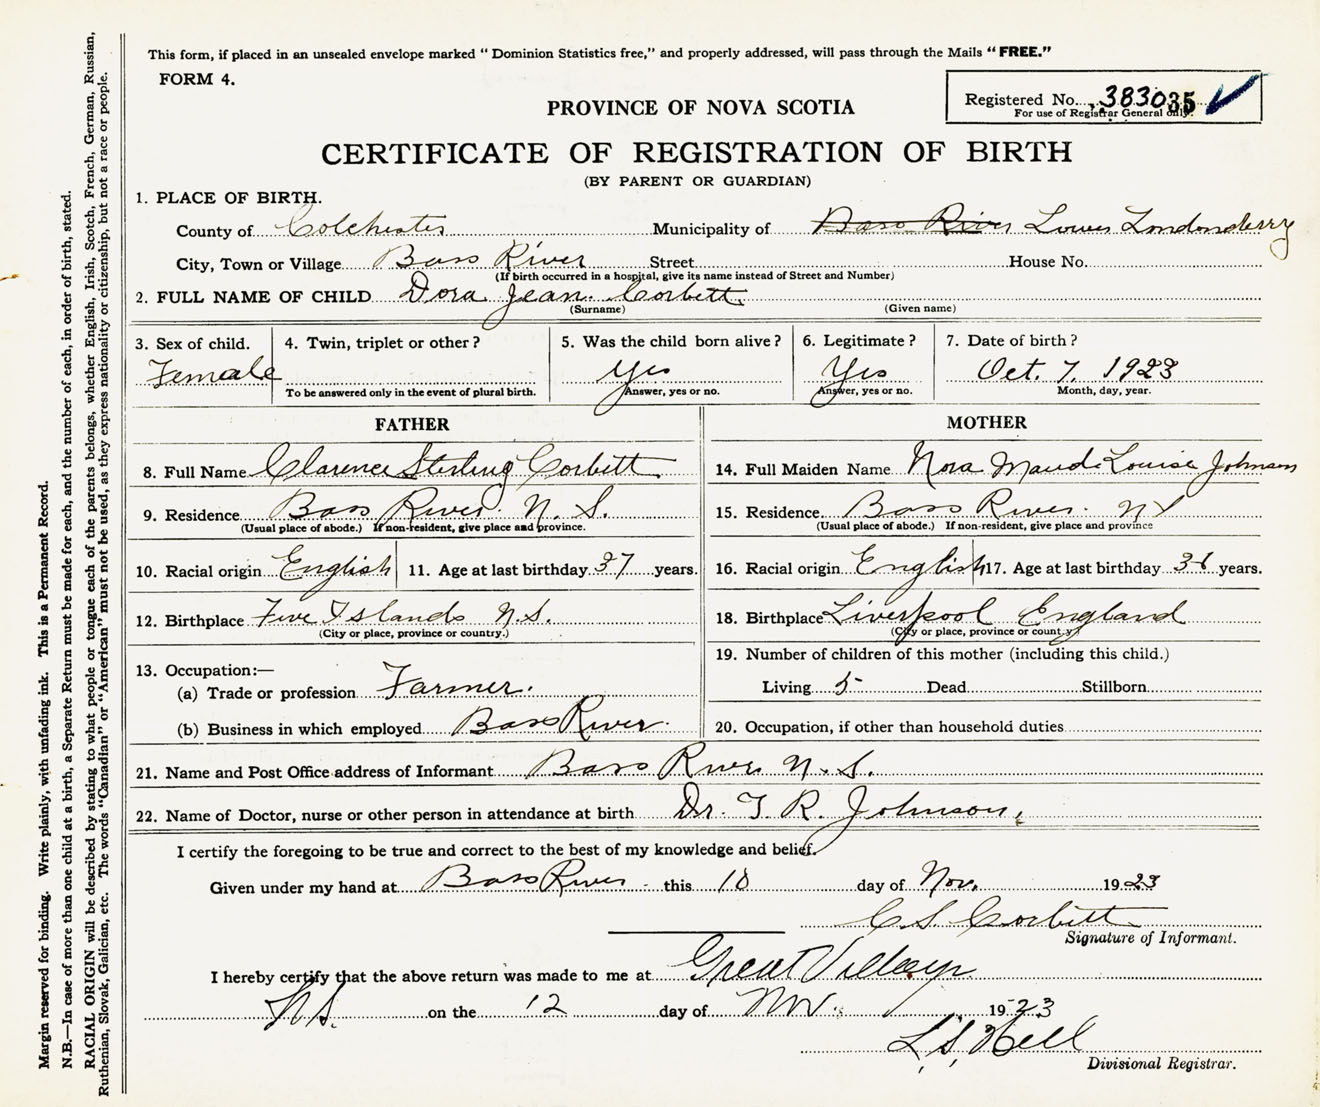 This form, if placed in an unsealed envelope marked "Dominion Statistics free," and properly addressed, will pass through the Mails "FREE."
FORM 4.
Registered No. 383035
For use of Registrar General only.
PROVINCE OF NOVA SCOTIA
CERTIFICATE OF REGISTRATION OF BIRTH
(BY PARENT OR GUARDIAN)
1. PLACE OF BIRTH.
County of Colchester Municipality of Bass River Lower Londonderry
City, Town or Village Bass River Street House No.
(If birth occurred in a hospital, give its name instead of Street and Number)
2. FULL NAME OF CHILD Dora Jean Corbett
(Surname) (Given name)
3. Sex of child. Female
4. Twin, triplet or other?
To be answered only in the event of plural birth.
5. Was the child born alive? Yes
Answer, yes or no.
6. Legitimate? Yes
Answer, yes or no.
7. Date of birth? Oct. 7, 1923
Month, day, year.
FATHER
8. Full Name Clarence Sterling Corbett
9. Residence Bass River N. S.
(Usual place of abode.) If non-resident, give place and province.
10. Racial origin English 11. Age at last birthday 37 years.
12. Birthplace Five Islands N.S.
(City or place, province or country.)
13. Occupation:—
(a) Trade or profession Farmer.
(b) Business in which employed Bass River.
MOTHER
14. Full Maiden Name Nora Maude Louise Johnson
15. Residence Bass River. NS
(Usual place of abode.) If non-resident, give place and province
16. Racial origin English 17. Age at last birthday years.
18. Birthplace Liverpool England
(City or place, province or country)
19. Number of children of this mother (including this child.)
Living 5 Dead Stillborn
20. Occupation, if other than household duties
21. Name and Post Office address of Informant Bass River N. S.
22. Name of Doctor, nurse or other person in attendance at birth Dr. T. R. Johnson,
I certify the foregoing to be true and correct to the best of my knowledge and belief.
Given under my hand at Bass River this 10 day of Nov. 1923
C. S. Corbett
Signature of Informant.
I hereby certify that the above return was made to me at Great Village
N.S. on the 12 day of Nov. 1923
L. S. Hill
Divisional Registrar.
Margin reserved for binding. Write plainly, with unfading ink. This is a Permanent Record.
N.B.—In case of more than one child at a birth, a Separate Return must be made for each, and the number of each, in order of birth, stated.
RACIAL ORIGIN will be described by stating to what people or tongue each of the parents belongs, whether English, Irish, Scotch, French, German, Russian,
Ruthenian, Slovak, Galician, etc. The words "Canadian" or "American" must not be used, as they express nationality or citizenship, but not a race or people.